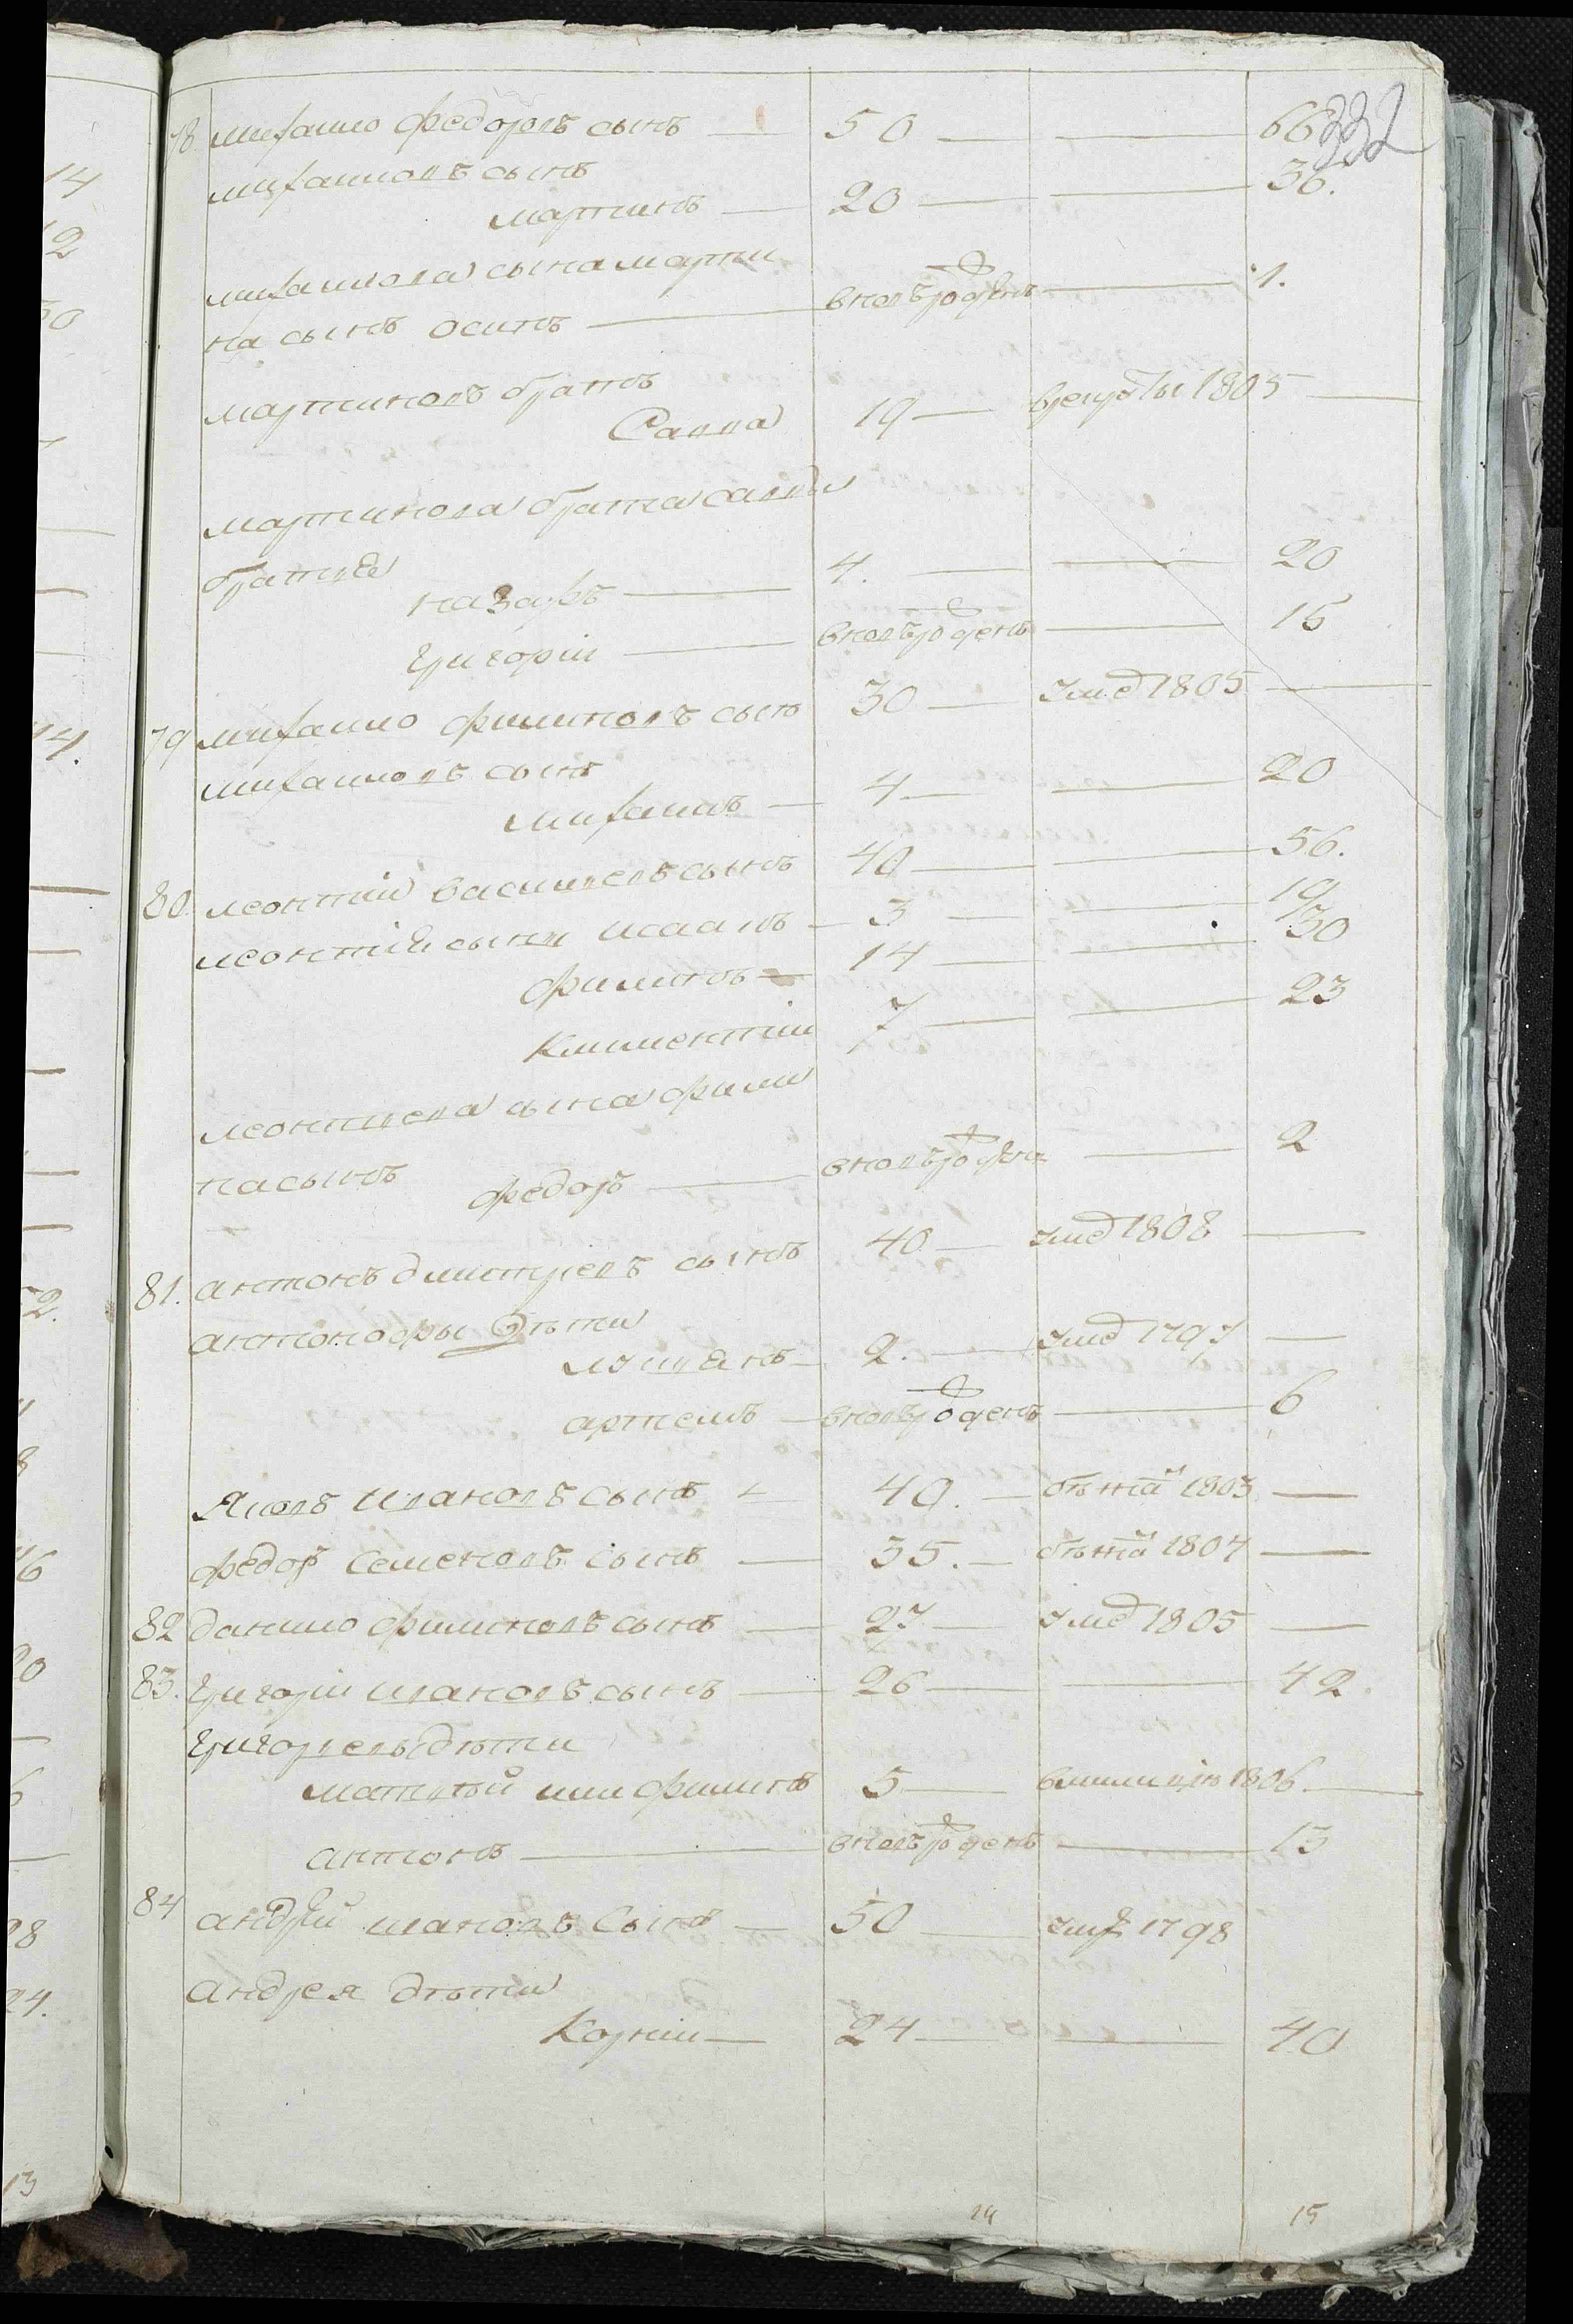 332
78 михаило федоровъ сынъ — 50 — — 66
михаиловъ сынъ
мартинъ — 20 — — 36.
михаилова сына марти
на сынъ осипъ — вновьрожденъ — 1.
мартиновъ братъ
Савва 19 — врекруты 1805 —
мартинова брата саввы
братья
назаръ — 4. — — 20
григорій — вновьрожденъ — 15
79 михаило филиповъ сынъ 30 — умеъ 1805 —
михаиловъ сынъ
михаилъ — 4 — — 20
80. леонтий васильевъ сынъ 40 — — 56.
леонтія сыни исаакъ — 3 — — 19
филипъ — 14 — — 30
климентій 7 — — 23
леонтиева сына фили
па сынъ федоръ — вновьрожденъ — 2
81. антонъ дмитріевъ сынъ 40 — умеъ 1808 —
антоновы дѣти
лукянъ — 2. — умеъ 1797 —
артемъ — вновьрожденъ — 6
Яковъ ивановъ сынъ — 40. — бѣжалъ 1803 —
федоръ Семеновъ сынъ — 35. — бѣжалъ 1804 —
82 данило филиповъ сынъ — 27 — умеъ 1805 —
83. григорій ивановъ сынъ — 26 — — 42.
григориевы дѣти
матвей или филипъ 5 — вмилицію 1806. —
антонъ — вновьрожденъ — 13
84 андрей ивановъ Сынъ — 50 — умеръ 1798
андрея дѣти
Корній — 24 — — 40
14 15